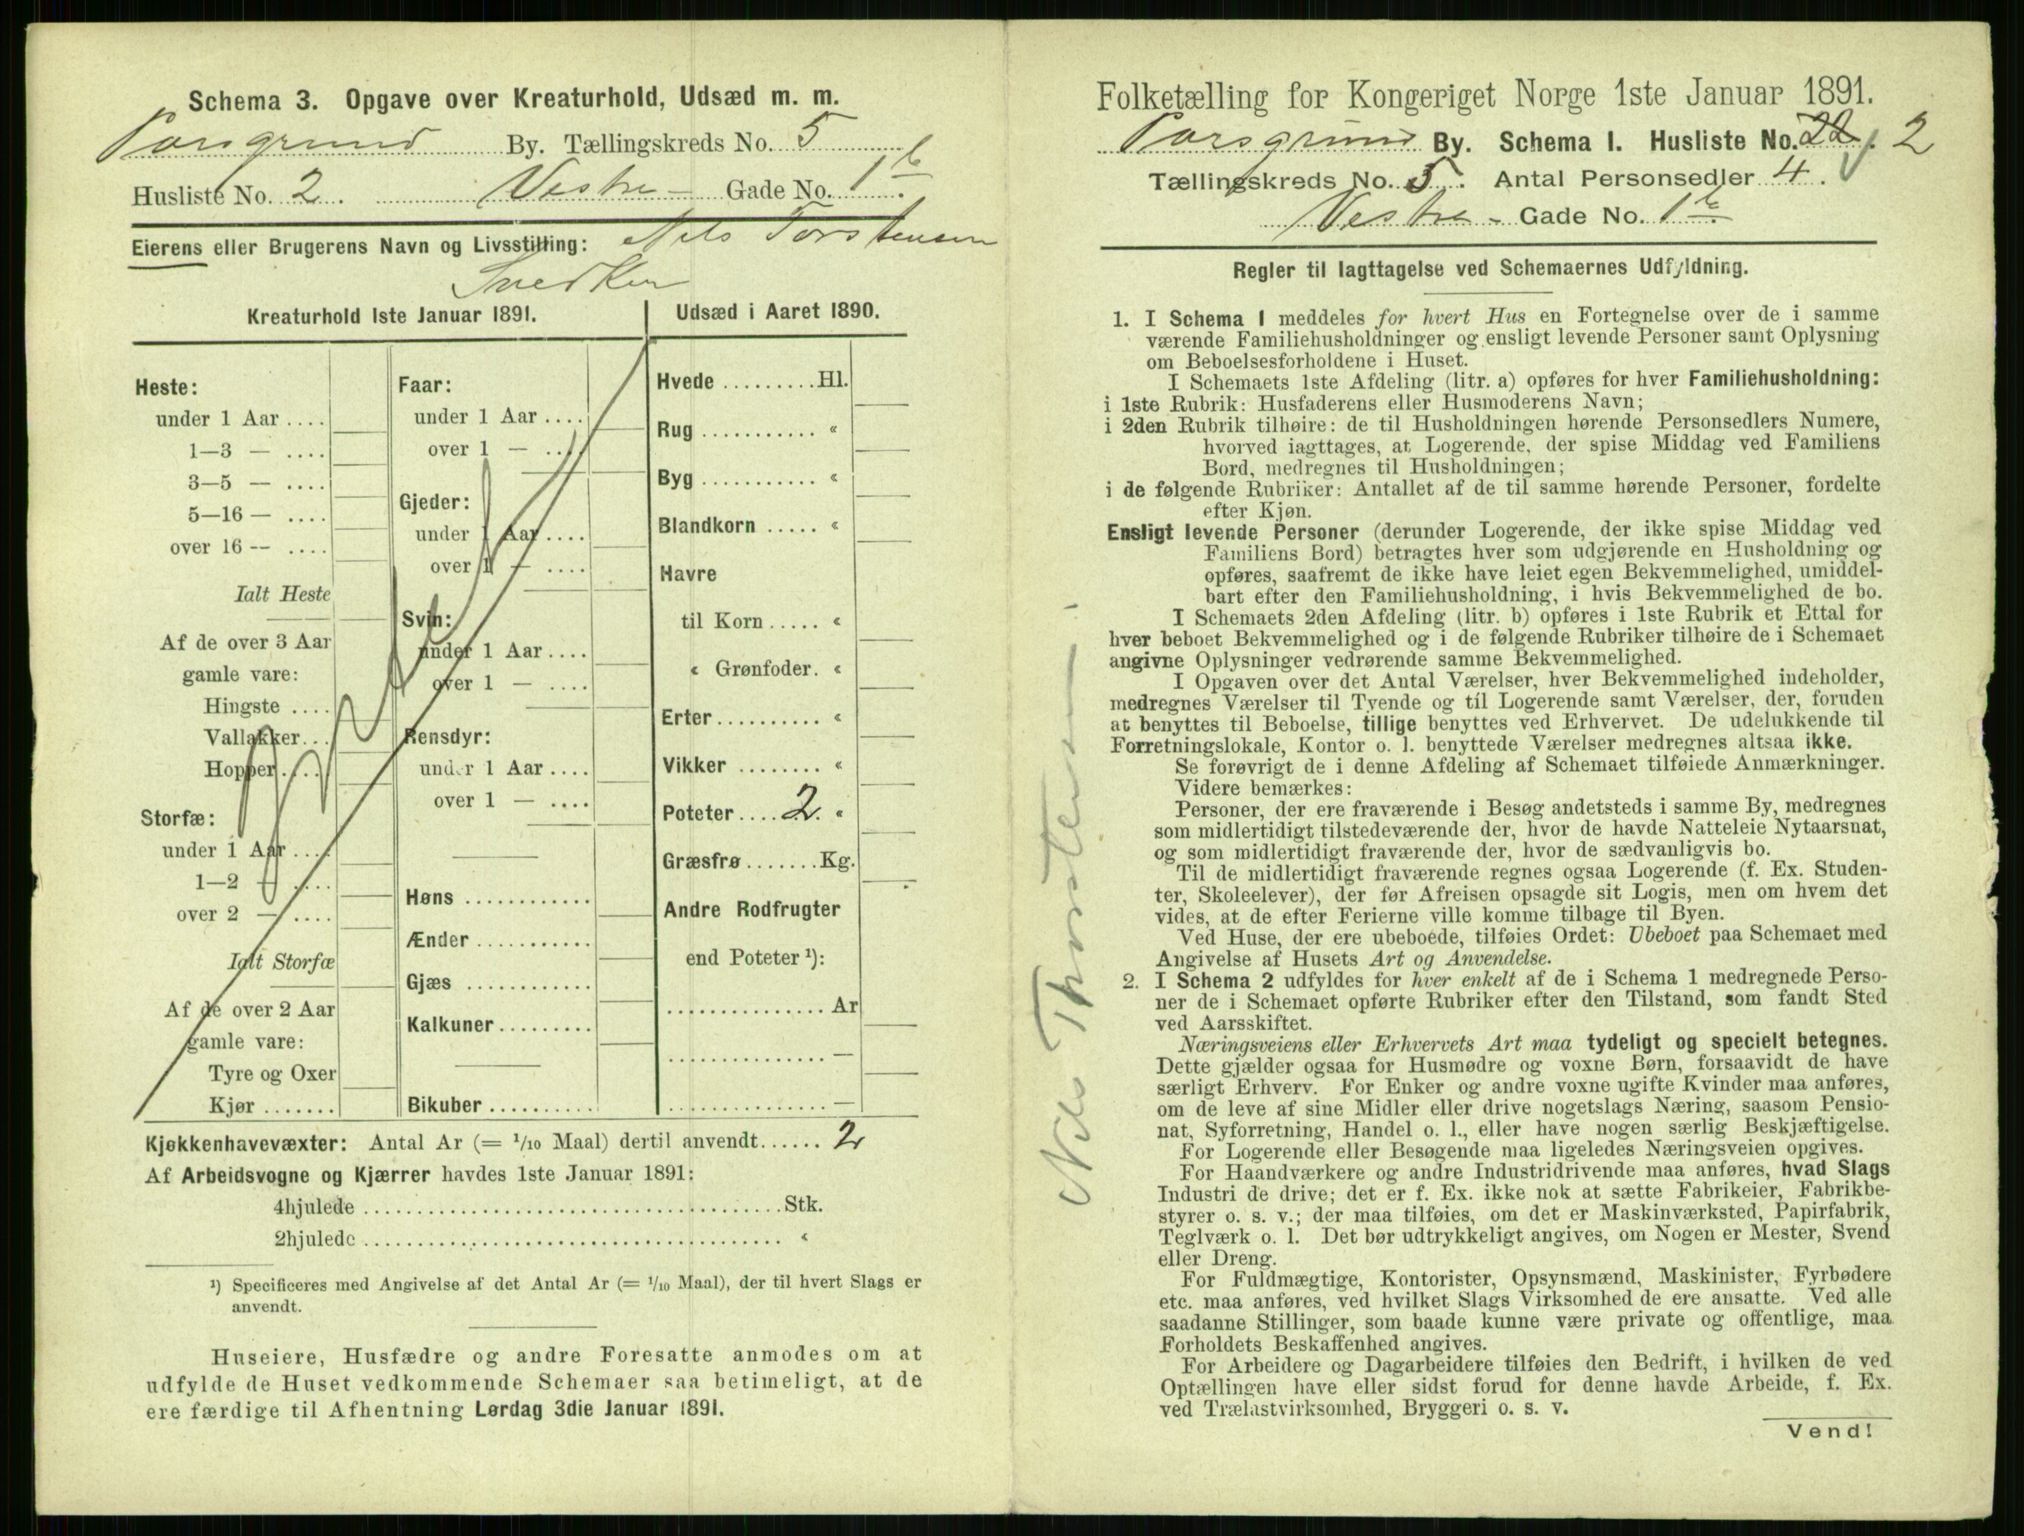 Schema 3. Opgave over Kreaturhold, Udsæd m. m.
Porsgrund By. Tællingskreds No. 5
Husliste No. 2. Vestre - Gade No. 1 b.
Eierens eller Brugerens Navn og Livsstilling: Nils Torstensen
Snedker
Kreaturhold 1ste Januar 1891.
Heste:
under 1 Aar ....
1—3 — ....
3—5 — ....
5—16 — ....
over 16 -- ....
Ialt Heste
Af de over 3 Aar
gamle vare:
Hingste ....
Vallakker...
Hopper....
Storfæ:
under 1 Aar ....
1—2 — ....
over 2 — ....
Ialt Storfæ
Af de over 2 Aar
gamle vare:
Tyre og Oxer
Kjør .......
Faar:
under 1 Aar ....
over 1 — ....
Gjeder:
under 1 Aar ....
over 1 — ....
Svin:
under 1 Aar ....
over 1 — ....
Rensdyr:
under 1 Aar ....
over 1 — ....
Høns ............
Ænder ...........
Gjæs ............
Kalkuner.........
Bikuber ..........
Udsæd i Aaret 1890.
Hvede .........Hl.
Rug ........... «
Byg ........... «
Blandkorn ..... «
Havre
til Korn ..... «
« Grønfoder. «
Erter.......... «
Vikker ........ «
Poteter .... 2. «
Græsfrø.......Kg.
Andre Rodfrugter
end Poteter ¹):
............... Ar
............... —
............... —
Kjøkkenhavevæxter: Antal Ar (= 1/10 Maal) dertil anvendt...... 2
Af Arbeidsvogne og Kjærrer havdes 1ste Januar 1891:
4hjulede ........................................Stk.
2hjulede ........................................ «
¹) Specificeres med Angivelse af det Antal Ar (= 1/10 Maal), der til hvert Slags er
anvendt.
Huseiere, Husfædre og andre Foresatte anmodes om at
udfylde de Huset vedkommende Schemaer saa betimeligt, at de
ere færdige til Afhentning Lørdag 3die Januar 1891.
Folketælling for Kongeriget Norge 1ste Januar 1891.
Porsgrund By. Schema I. Husliste No. 22. 2
Tællingskreds No. 5. Antal Personsedler 4.
Vestre - Gade No. 1 b.
Regler til Iagttagelse ved Schemaernes Udfyldning.
1. I Schema 1 meddeles for hvert Hus en Fortegnelse over de i samme
værende Familiehusholdninger og ensligt levende Personer samt Oplysning
om Beboelsesforholdene i Huset.
I Schemaets 1ste Afdeling (litr. a) opføres for hver Familiehusholdning:
i 1ste Rubrik: Husfaderens eller Husmoderens Navn;
i 2den Rubrik tilhøire: de til Husholdningen hørende Personsedlers Numere,
hvorved iagttages, at Logerende, der spise Middag ved Familiens
Bord, medregnes til Husholdningen;
i de følgende Rubriker: Antallet af de til samme hørende Personer, fordelte
efter Kjøn.
Ensligt levende Personer (derunder Logerende, der ikke spise Middag ved
Familiens Bord) betragtes hver som udgjørende en Husholdning og
opføres, saafremt de ikke have leiet egen Bekvemmelighed, umiddel-
bart efter den Familiehusholdning, i hvis Bekvemmelighed de bo.
I Schemaets 2den Afdeling (litr. b) opføres i 1ste Rubrik et Ettal for
hver beboet Bekvemmelighed og i de følgende Rubriker tilhøire de i Schemaet
angivne Oplysninger vedrørende samme Bekvemmelighed.
I Opgaven over det Antal Værelser, hver Bekvemmelighed indeholder,
medregnes Værelser til Tyende og til Logerende samt Værelser, der, foruden
at benyttes til Beboelse, tillige benyttes ved Erhvervet. De udelukkende til
Forretningslokale, Kontor o. l. benyttede Værelser medregnes altsaa ikke.
Se forøvrigt de i denne Afdeling af Schemaet tilføiede Anmærkninger.
Videre bemærkes:
Personer, der ere fraværende i Besøg andetsteds i samme By, medregnes
som midlertidigt tilstedeværende der, hvor de havde Natteleie Nytaarsnat,
og som midlertidigt fraværende der, hvor de sædvanligvis bo.
Til de midlertidigt fraværende regnes ogsaa Logerende (f. Ex. Studen-
ter, Skoleelever), der før Afreisen opsagde sit Logis, men om hvem det
vides, at de efter Ferierne ville komme tilbage til Byen.
Ved Huse, der ere ubeboede, tilføies Ordet: Ubeboet paa Schemaet med
Angivelse af Husets Art og Anvendelse.
2. I Schema 2 udfyldes for hver enkelt af de i Schema 1 medregnede Perso-
ner de i Schemaet opførte Rubriker efter den Tilstand, som fandt Sted
ved Aarsskiftet.
Næringsveiens eller Erhvervets Art maa tydeligt og specielt betegnes.
Dette gjælder ogsaa for Husmødre og voxne Børn, forsaavidt de have
særligt Erhverv. For Enker og andre voxne ugifte Kvinder maa anføres,
om de leve af sine Midler eller drive nogetslags Næring, saasom Pensio-
nat, Syforretning, Handel o. l., eller have nogen særlig Beskjæftigelse.
For Logerende eller Besøgende maa ligeledes Næringsveien opgives.
For Haandværkere og andre Industridrivende maa anføres, hvad Slags
Industri de drive; det er f. Ex. ikke nok at sætte Fabrikeier, Fabrikbe-
styrer o. s. v.; der maa tilføies, om det er Maskinværksted, Papirfabrik,
Teglværk o. l. Det bør udtrykkeligt angives, om Nogen er Mester, Svend
eller Dreng.
For Fuldmægtige, Kontorister, Opsynsmænd, Maskinister, Fyrbødere
etc. maa anføres, ved hvilket Slags Virksomhed de ere ansatte. Ved alle
saadanne Stillinger, som baade kunne være private og offentlige, maa
Forholdets Beskaffenhed angives.
For Arbeidere og Dagarbeidere tilføies den Bedrift, i hvilken de ved
Optællingen have eller sidst forud for denne havde Arbeide, f. Ex.
ved Trælastvirksomhed, Bryggeri o. s. v.
Vend!
Nils Thorstensen